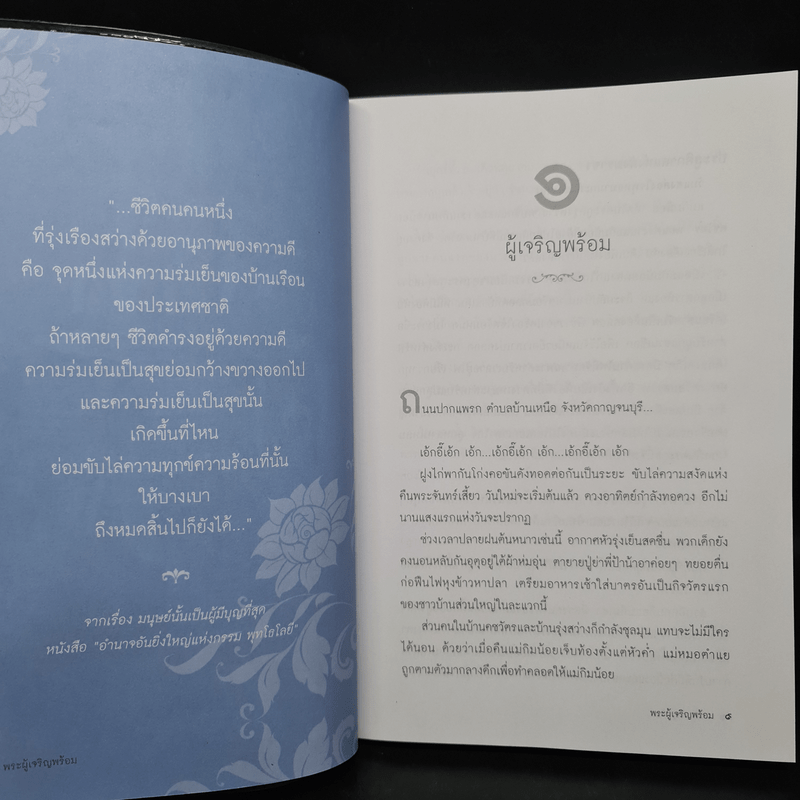 "...ชีวิตคนคนหนึ่ง
ที่รุ่งเรืองสว่างด้วยอานุภาพของความดี
คือ จุดหนึ่งแห่งความร่มเย็นของบ้านเรือน
ของประเทศชาติ
ถ้าหลายๆ ชีวิตดำรงอยู่ด้วยความดี
ความร่มเย็นเป็นสุขย่อมกว้างขวางออกไป
และความร่มเย็นเป็นสุขนั้น
เกิดขึ้นที่ไหน
ย่อมขับไล่ความทุกข์ความร้อนที่นั้น
ให้บางเบา
ถึงหมดสิ้นไปก็ยังได้..."
จากเรื่อง มนุษย์นั้นเป็นผู้มีบุญที่สุด
หนังสือ "อำนาจอันยิ่งใหญ่แห่งกรรม พุทโธโลยี"
พระผู้เจริญพร้อม
๑
ผู้เจริญพร้อม
ถนนปากแพรก ตำบลบ้านเหนือ จังหวัดกาญจนบุรี...
เอ้กอี๊เอ้ก เอ้ก...เอ้กอี๊เอ้ก เอ้ก...เอ้กอี๊เอ้ก เอ้ก
ฝูงไก่พากันโก่งคอขันดังทอดต่อกันเป็นระยะ ขับไล่ความสงัดแห่ง
คืนพระจันทร์เสี้ยว วันใหม่จะเริ่มต้นแล้ว ดวงอาทิตย์กำลังทอดวง อีกไม่
นานแสงแรกแห่งวันจะปรากฏ
ช่วงเวลาปลายฝนต้นหนาวเช่นนี้ อากาศหัวรุ่งเย็นสดชื่น พวกเด็กยัง
คงนอนหลับกันอุตุอยู่ใต้ผ้าห่มอุ่น ตายายปู่ย่าพี่ป้าน้าอาค่อยๆ ทยอยตื่น
ก่อฟืนไฟหุงข้าวหาปลา เตรียมอาหารเช้าใส่บาตรอันเป็นกิจวัตรแรก
ของชาวบ้านส่วนใหญ่ในละแวกนี้
ส่วนคนในบ้านคชวัตรและบ้านรุ่งสว่างก็กำลังชุลมุน แทบจะไม่มีใคร
ได้นอน ด้วยว่าเมื่อคืนแม่กิมน้อยเจ็บท้องตั้งแต่หัวค่ำ แม่หมอตำแย
ถูกตามตัวมากลางดึกเพื่อทำคลอดให้แม่กิมน้อย
พระผู้เจริญพร้อม ๕